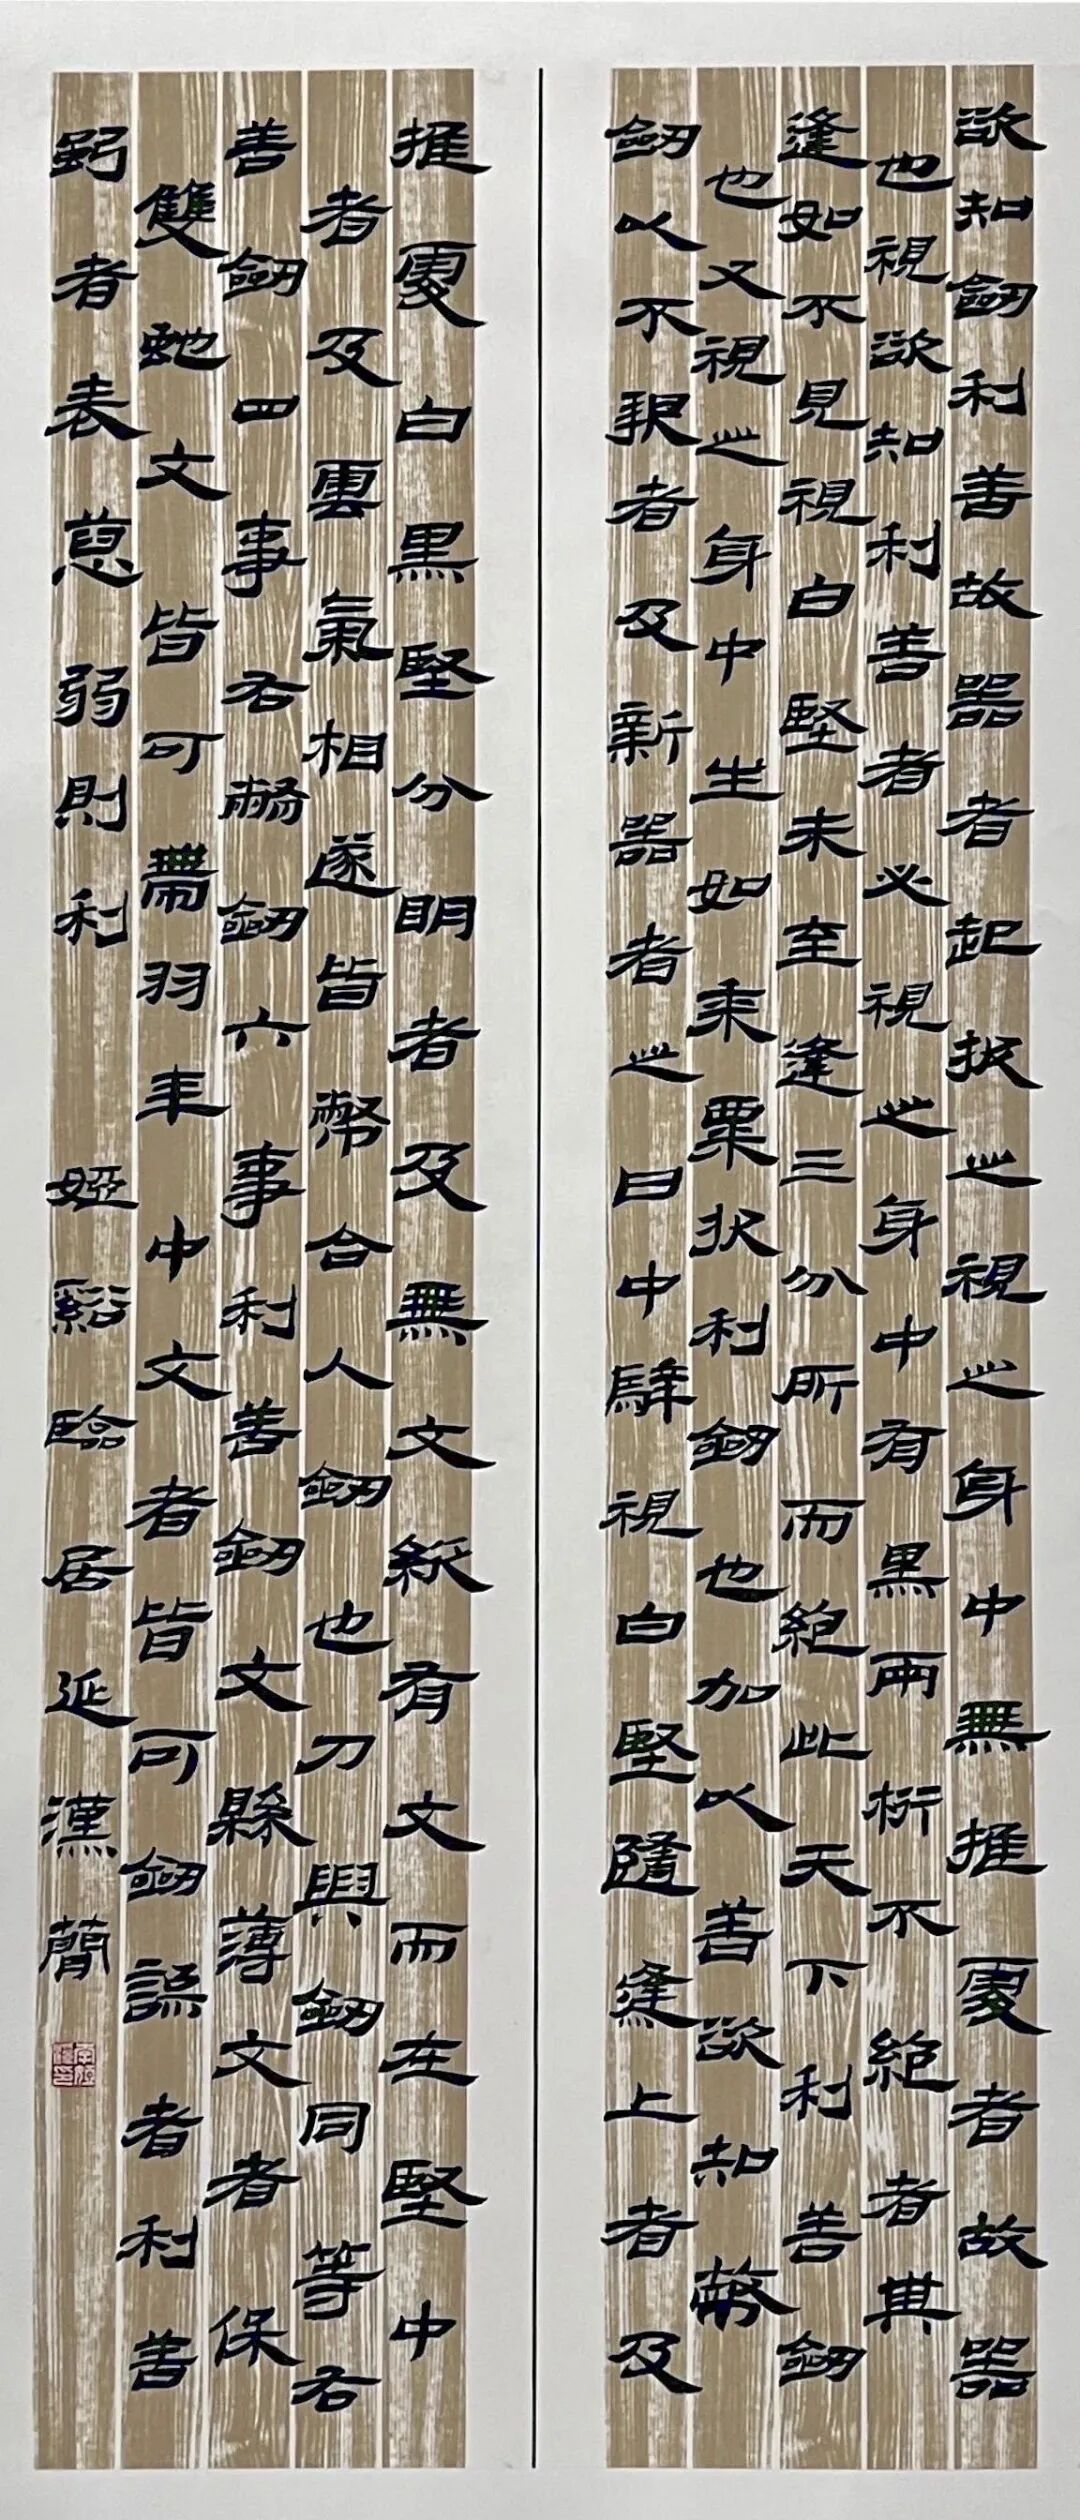 欲知劒利善故器者起拔之視之身中無推處者故器
也視欲知利善者必視之身中有黑兩桁不絕者其
逢如不見視白堅未至逢三分所而絕此天下利善劒
也又視之身中生如黍粟狀利劒也加以善欲知幣
劒以不報者及新器者之日中騂視白堅隨逢上者及
推處白黑堅分明者及無文縱有文而在堅中
者及雲氣相遂皆幣合人劒也刀與劒同等右
善劒四事右幣劒六事利善劒文縣薄文者保
雙蛇文皆可帶羽圭中文者皆可劒謡者利善
者表弱則利 婭谿臨居延漢簡